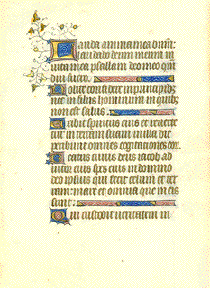 Lauda anima mea dnm
laudabo deum meum in
uita mea psallam deo meo
diu fuero
Nolite confidere in principibus
in filiis hominum in quib
non est salus
Exibit spiritus eius et reuerte
tur in terram suam in illa die
peribunt omnes cogitationes eor
Beatus cuius deus iacob ad
iutor eius spes eius in domino
deo ipsius qui fecit celum et ter
ram mare et omnia que in eis
sunt
Qui custodit ueritatem in